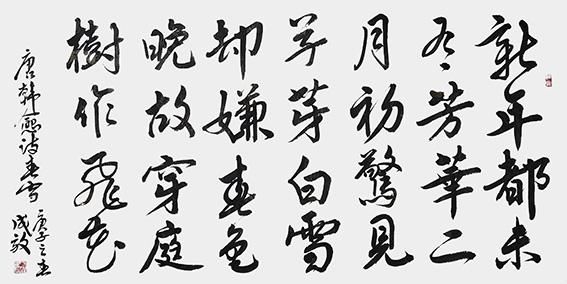 新年都未
有芳華二
月初驚見
草芽白雪
却嫌春色
晚故穿庭
樹作飛花
唐韓愈詩春雪
庚子之春
成